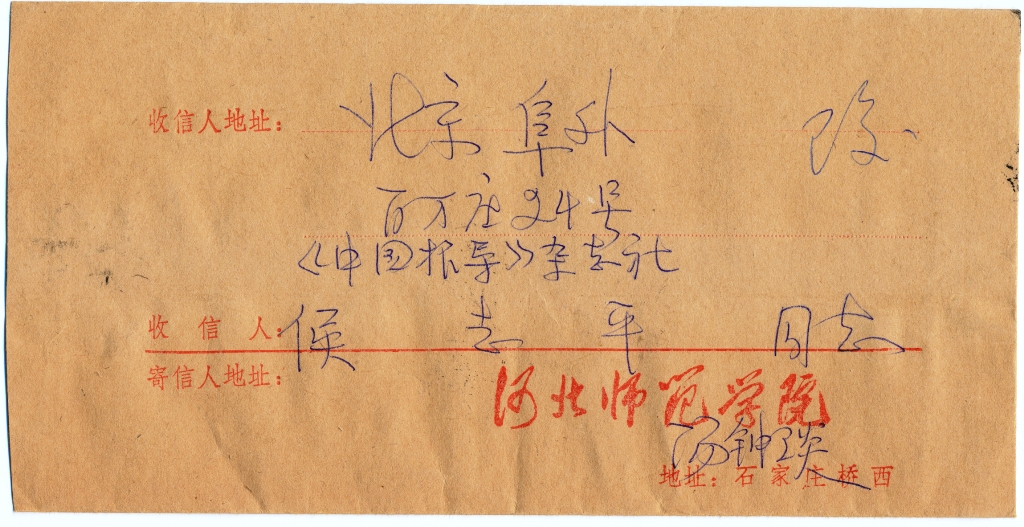 收信人地址：北京 阜外
百万庄24号
《中国报导》杂志社
收信人：侯志平 同志
寄信人地址：
河北师范学院
汤钟琰
地址：石家庄桥西